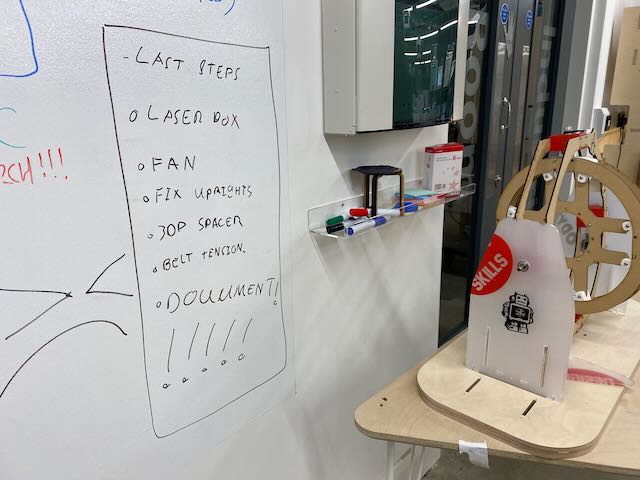 - LAST STEPS
o LASER BOX
o FAN
o FIX UPRIGHTS
o 3DP SPACER
o BELT TENSION.
o DOCUMENT!
! ! ! ! !
!!!
SKILLS